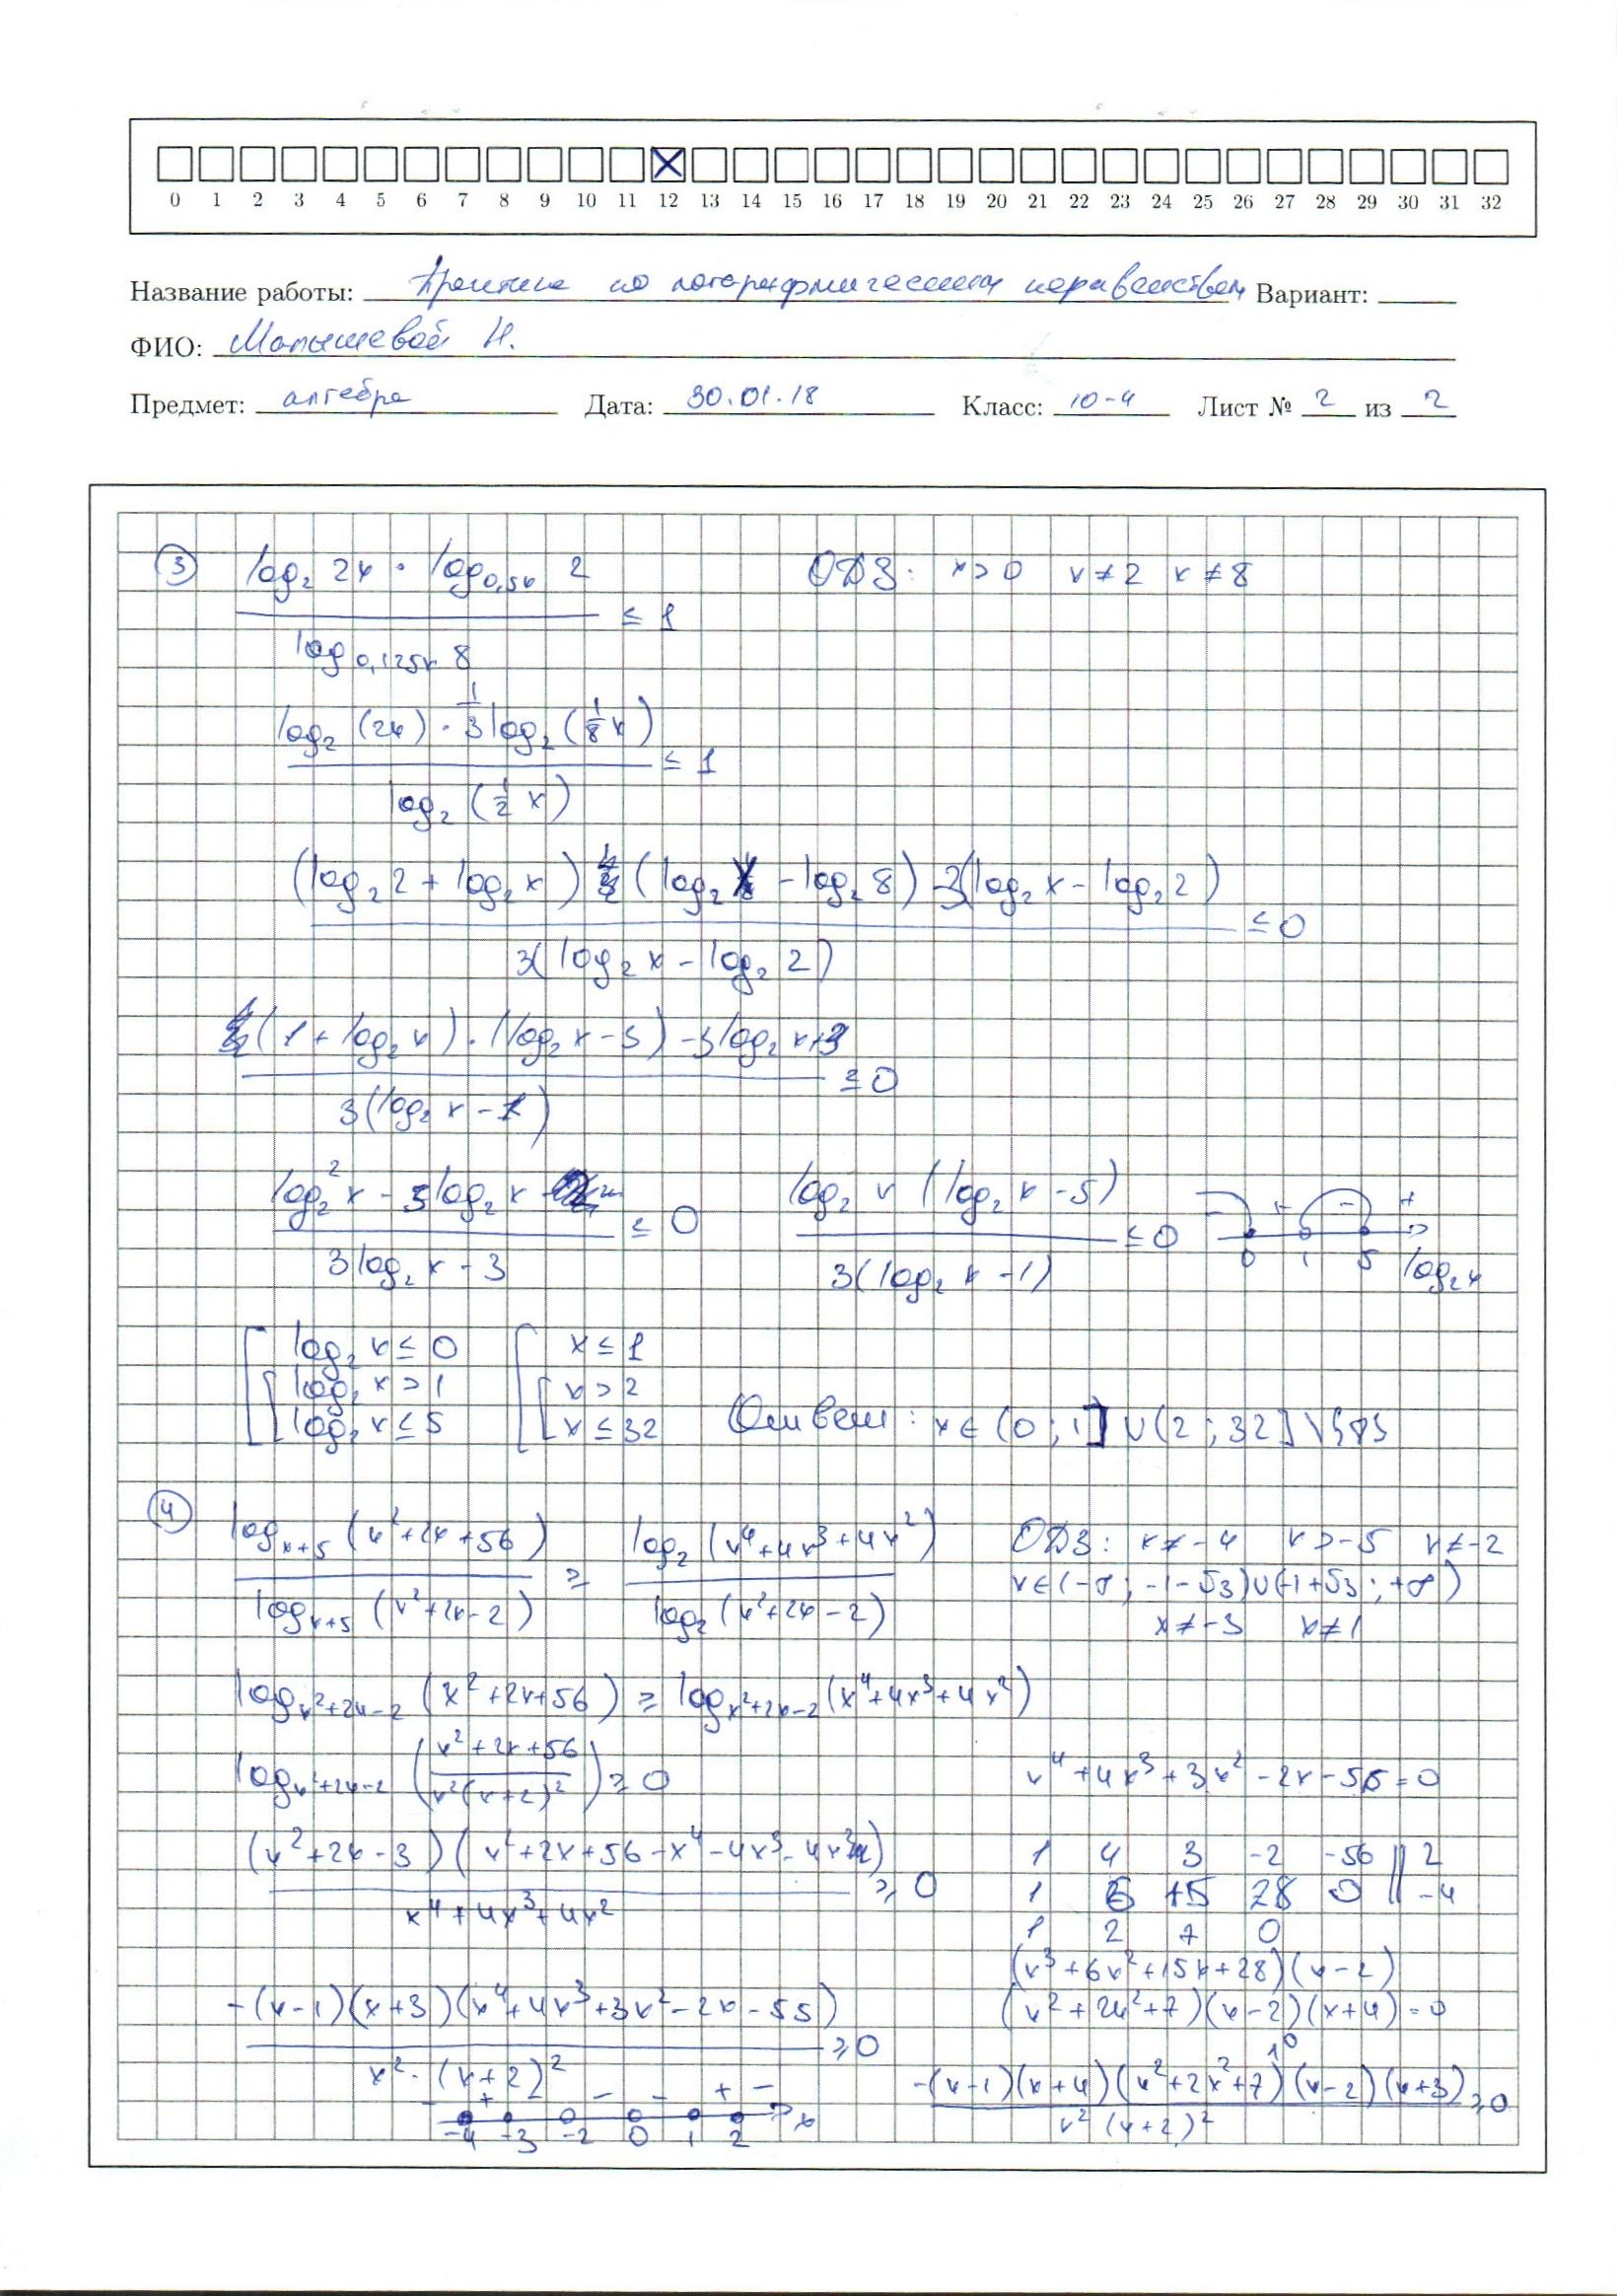 0 1 2 3 4 5 6 7 8 9 10 11 12 13 14 15 16 17 18 19 20 21 22 23 24 25 26 27 28 29 30 31 32
Название работы: Практика по логарифмическим неравенствам Вариант:
ФИО: Малышевой Н.
Предмет: алгебра Дата: 30.01.18 Класс: 10-4 Лист № 2 из 2
3 log₂ 2x · log₀,₅ₓ 2 / log₀,₁₂₅ₓ 8 ≤ 1 ОДЗ: x > 0 x ≠ 2 x ≠ 8
log₂ (2x) · 1/3 log₂ (1/8 x) / log₂ (1/2 x) ≤ 1
(log₂ 2 + log₂ x) (log₂ x - log₂ 8) - 3(log₂ x - log₂ 2) / 3(log₂ x - log₂ 2) ≤ 0
(1 + log₂ x) · (log₂ x - 3) - 3 log₂ x + 3 / 3(log₂ x - 1) ≤ 0
log₂² x - 5 log₂ x / 3 log₂ x - 3 ≤ 0 log₂ x (log₂ x - 5) / 3(log₂ x - 1) ≤ 0 - + - + 0 1 5 log₂ x
log₂ x ≤ 0 x ≤ 1
log₂ x > 1 x > 2
log₂ x ≤ 5 x ≤ 32 Ответ: x ∈ (0; 1] ∪ (2; 32] \ {8}
4 log ₓ₊₅ (x² + 2x + 56) / log ₓ₊₅ (x² + 2x - 2) ≥ log₂ (x⁴ + 4x³ + 4x²) / log₂ (x² + 2x - 2) ОДЗ: x ≠ -4 x > -5 x ≠ -2
x ∈ (-∞; -1-√3) ∪ (-1+√3; +∞)
x ≠ -3 x ≠ 1
log_{x²+2x-2} (x² + 2x + 56) ≥ log_{x²+2x-2} (x⁴ + 4x³ + 4x²)
log_{x²+2x-2} (x² + 2x + 56 / x²(x+2)²) ≥ 0 x⁴ + 4x³ + 3x² - 2x - 56 = 0
(x² + 2x - 3)(x² + 2x + 56 - x⁴ - 4x³ - 4x²) / x⁴ + 4x³ + 4x² ≥ 0
1 4 3 -2 -56 || 2
1 6 15 28 0 || -4
1 2 7 0
(x³ + 6x² + 15x + 28)(x - 2)
-(x-1)(x+3)(x⁴ + 4x³ + 3x² - 2x - 55) / x² · (x+2)² ≥ 0 (x² + 2x² + 7)(x - 2)(x + 4) = 0
- + - - + - -4 -3 -2 0 1 2 x
-(x-1)(x+4)(x² + 2x² + 7)(x-2)(x+3) / x² (x+2)² ≥ 0